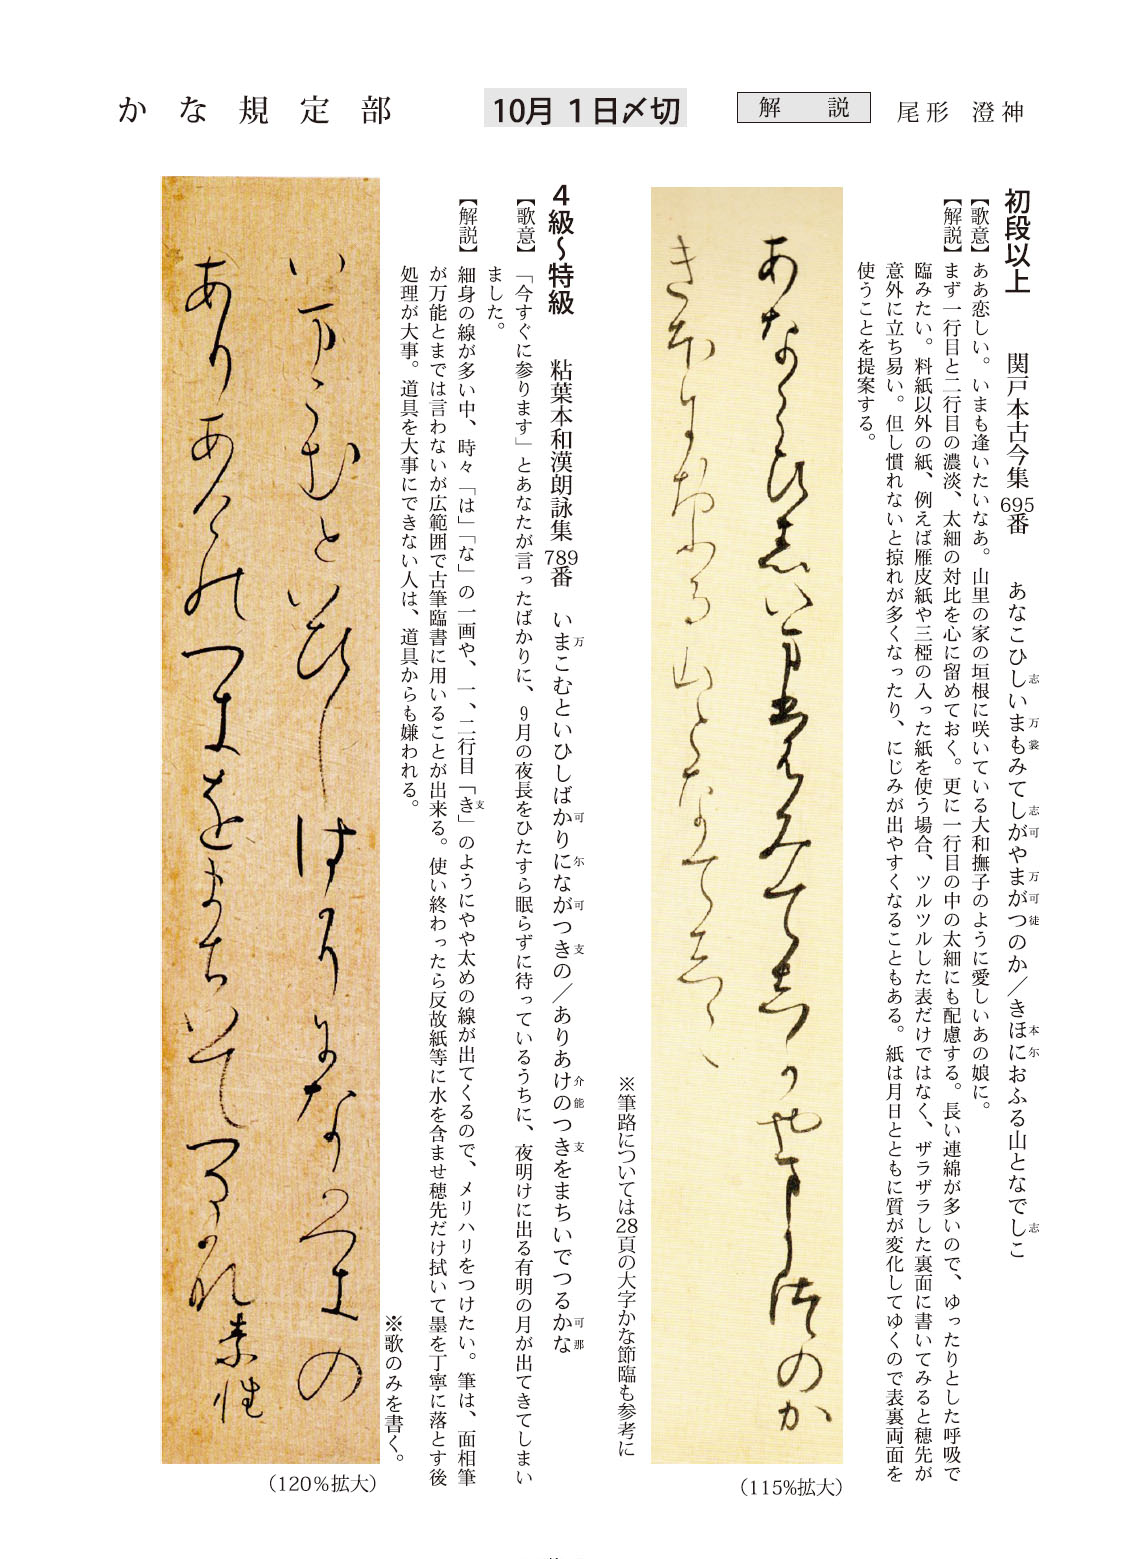 かな規定部
10月1日〆切
解説
尾形 澄神
初段以上 関戸本古今集695番 あなこひしいまもみてしがやまがつのか／きほにおふる山となでしこ
志 万 裳 志 可 万 可 徒 本 尓 志
【歌意】ああ恋しい。いまも逢いたいなあ。山里の家の垣根に咲いている大和撫子のように愛しいあの娘に。
【解説】まず一行目と二行目の濃淡、太細の対比を心に留めておく。更に一行目の中の太細にも配慮する。長い連綿が多いので、ゆったりとした呼吸で
臨みたい。料紙以外の紙、例えば雁皮紙や三椏の入った紙を使う場合、ツルツルした表だけではなく、ザラザラした裏面に書いてみると穂先が
意外に立ち易い。但し慣れないと掠れが多くなったり、にじみが出やすくなることもある。紙は月日とともに質が変化してゆくので表裏両面を
使うことを提案する。
あなこひしい万裳みて志可や万可徒のか
き本尓おふる山となてしこ
（115%拡大）
※筆路については28頁の大字かな節臨も参考に
4級～特級 粘葉本和漢朗詠集789番 いまこむといひしばかりにながつきの／ありあけのつきをまちいでつるかな
万 可 尓 可 支 介 能 支 可 那
【歌意】「今すぐに参ります」とあなたが言ったばかりに、9月の夜長をひたすら眠らずに待っているうちに、夜明けに出る有明の月が出てきてしまい
ました。
【解説】細身の線が多い中、時々「は」「な」の一画や、一、二行目「き」のようにやや太めの線が出てくるので、メリハリをつけたい。筆は、面相筆
支
が万能とまでは言わないが広範囲で古筆臨書に用いることが出来る。使い終わったら反故紙等に水を含ませ穂先だけ拭いて墨を丁寧に落とす後
処理が大事。道具を大事にできない人は、道具からも嫌われる。
※歌のみを書く。
い万こむといひしは可り尓な可つ支の
ありあ介能つ支をまちいてつる可那 素性
（120%拡大）